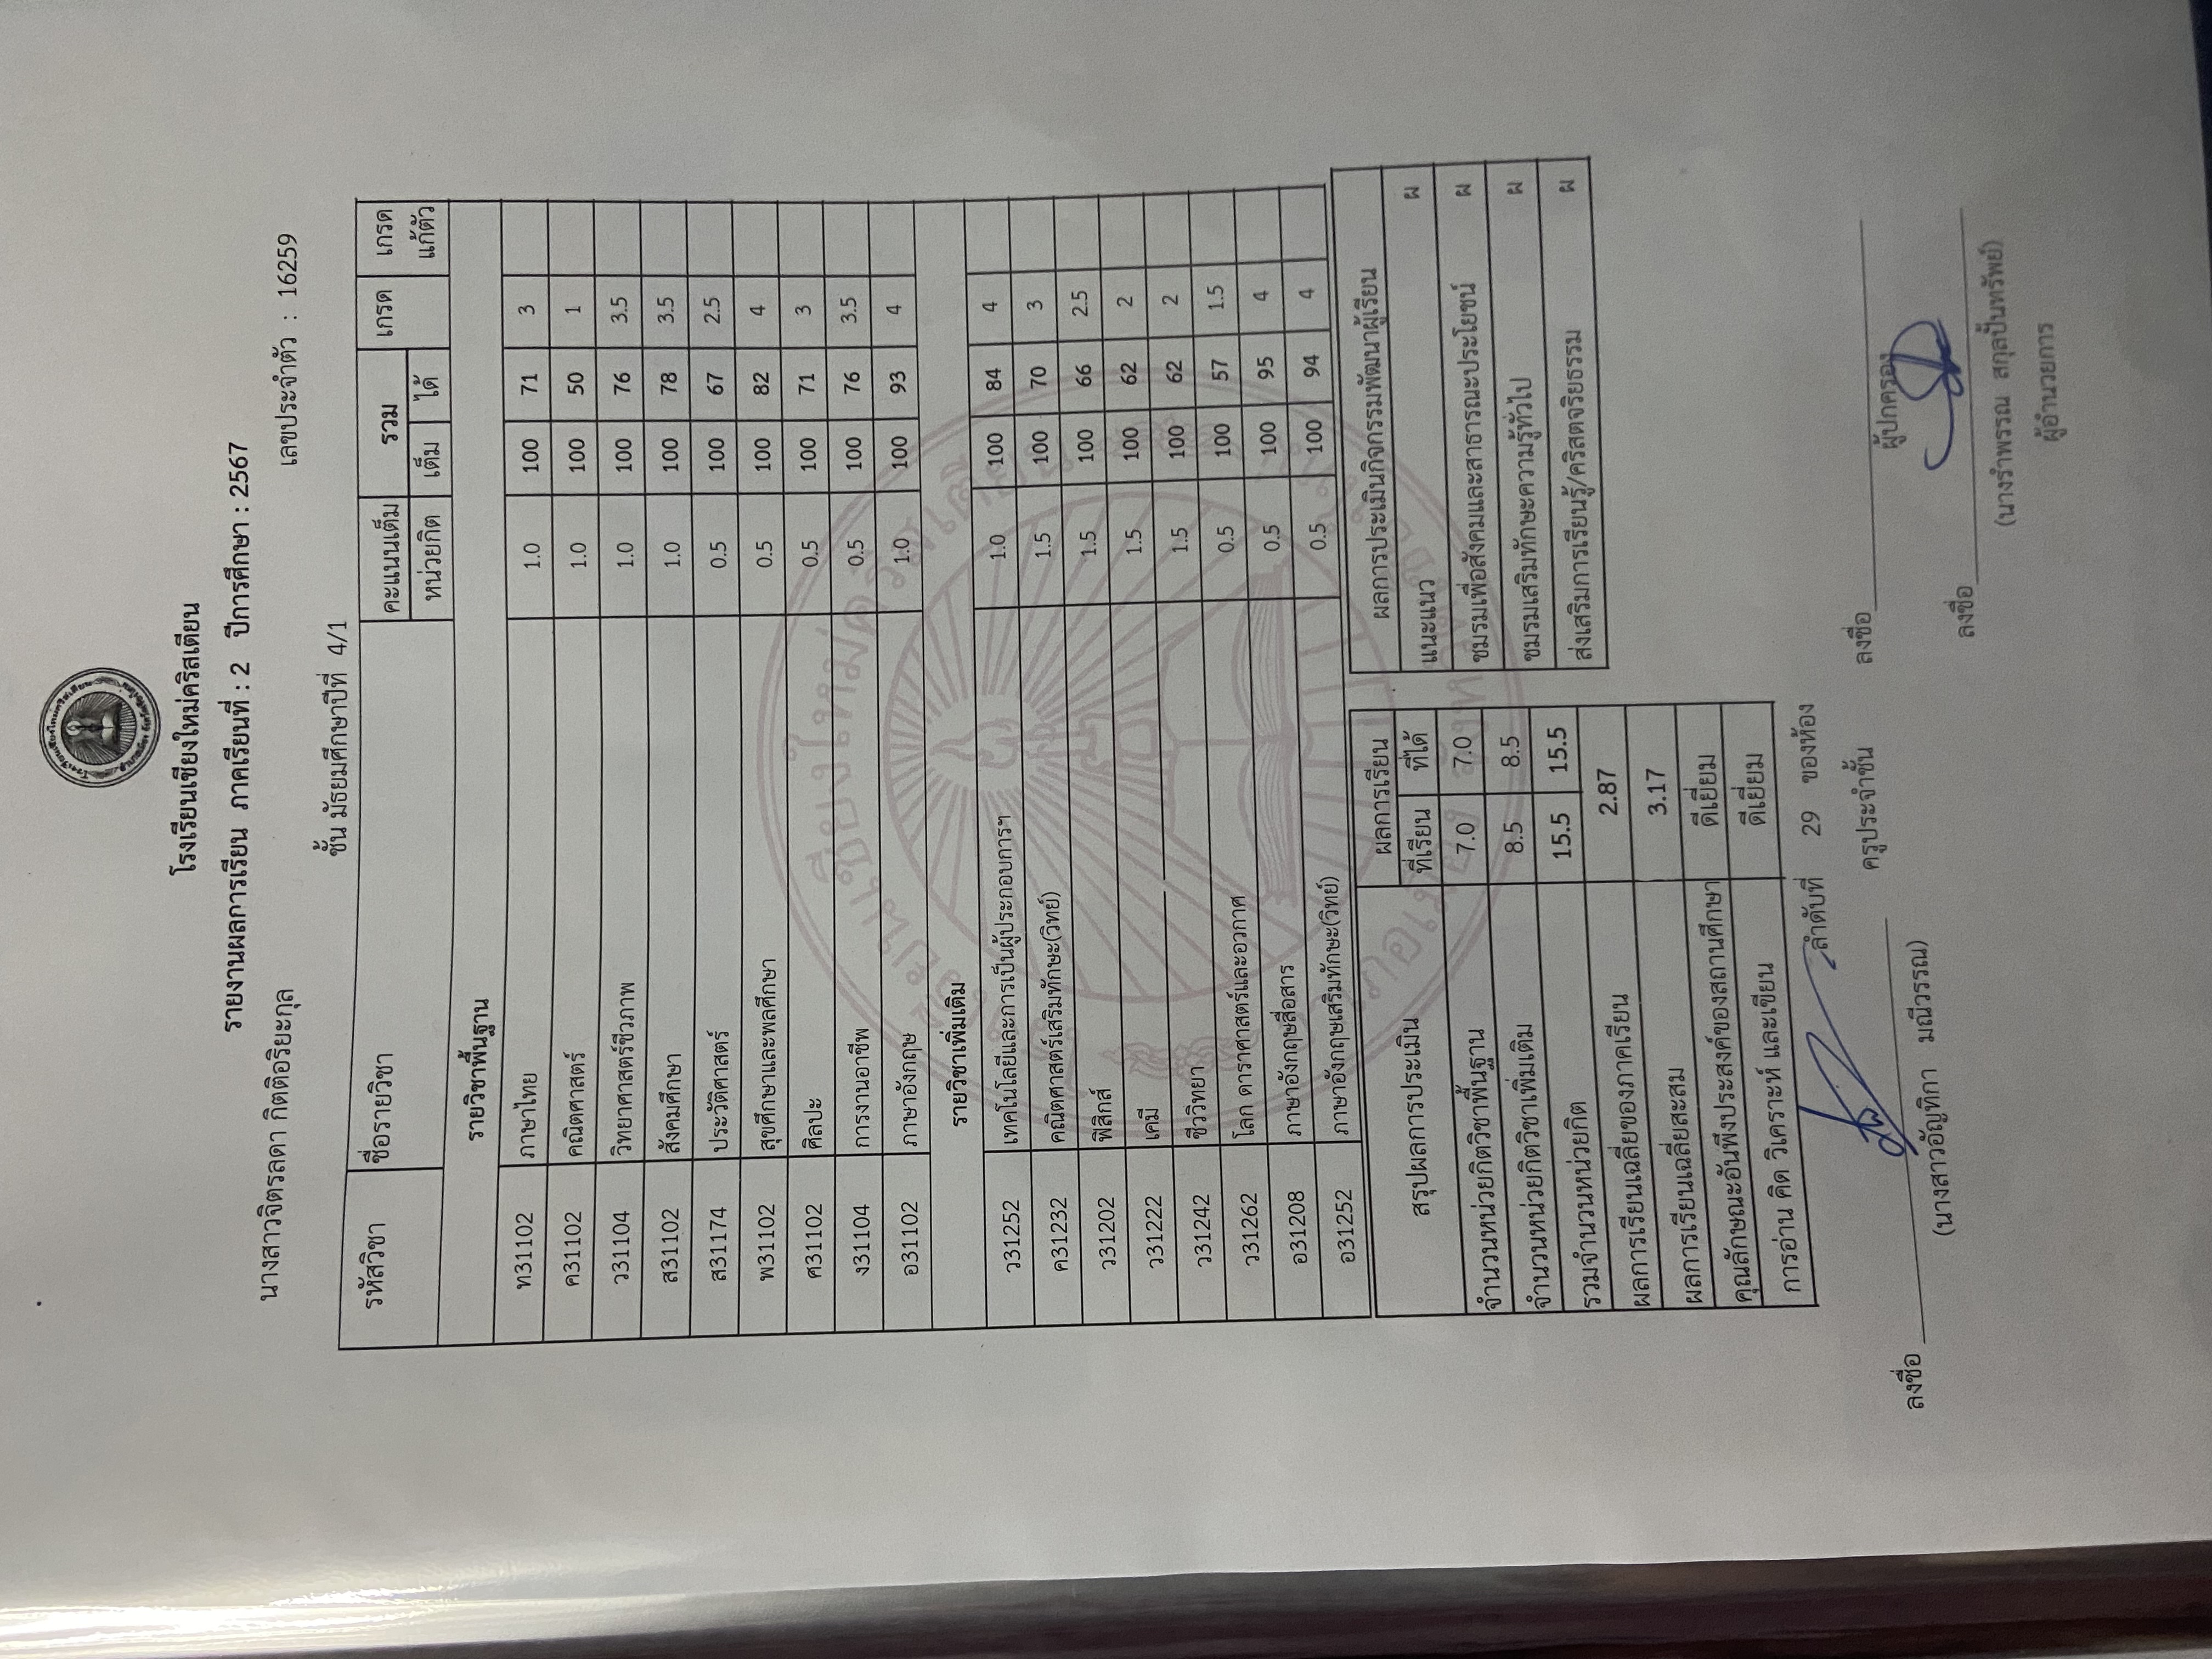 โรงเรียนเชียงใหม่คริสเตียน
รายงานผลการเรียน ภาคเรียนที่ : 2 ปีการศึกษา : 2567
นางสาวจิตรลดา กิตติอริยะกุล เลขประจำตัว : 16259
ชั้น มัธยมศึกษาปีที่ 4/1
รหัสวิชา ชื่อรายวิชา คะแนนเต็ม รวม เกรด เกรด
หน่วยกิต เต็ม ได้ แก้ตัว
รายวิชาพื้นฐาน
ท31102 ภาษาไทย 1.0 100 71 3
ค31102 คณิตศาสตร์ 1.0 100 50 1
ว31104 วิทยาศาสตร์ชีวภาพ 1.0 100 76 3.5
ส31102 สังคมศึกษา 1.0 100 78 3.5
ส31174 ประวัติศาสตร์ 0.5 100 67 2.5
พ31102 สุขศึกษาและพลศึกษา 0.5 100 82 4
ศ31102 ศิลปะ 0.5 100 71 3
ง31104 การงานอาชีพ 0.5 100 76 3.5
อ31102 ภาษาอังกฤษ 1.0 100 93 4
รายวิชาเพิ่มเติม
ว31252 เทคโนโลยีและการเป็นผู้ประกอบการฯ 1.0 100 84 4
ค31232 คณิตศาสตร์เสริมทักษะ(วิทย์) 1.5 100 70 3
ว31202 ฟิสิกส์ 1.5 100 66 2.5
ว31222 เคมี 1.5 100 62 2
ว31242 ชีววิทยา 1.5 100 62 2
ว31262 โลก ดาราศาสตร์และอวกาศ 0.5 100 57 1.5
อ31208 ภาษาอังกฤษสื่อสาร 0.5 100 95 4
อ31252 ภาษาอังกฤษเสริมทักษะ(วิทย์) 0.5 100 94 4
สรุปผลการประเมิน ผลการเรียน
ที่เรียน ที่ได้
จำนวนหน่วยกิตวิชาพื้นฐาน 7.0 7.0
จำนวนหน่วยกิตวิชาเพิ่มเติม 8.5 8.5
รวมจำนวนหน่วยกิต 15.5 15.5
ผลการเรียนเฉลี่ยของภาคเรียน 2.87
ผลการเรียนเฉลี่ยสะสม 3.17
คุณลักษณะอันพึงประสงค์ของสถานศึกษา ดีเยี่ยม
การอ่าน คิด วิเคราะห์ และเขียน ดีเยี่ยม
ลำดับที่ 29 ของห้อง
ผลการประเมินกิจกรรมพัฒนาผู้เรียน
แนะแนว ผ
ชมรมเพื่อสังคมและสาธารณะประโยชน์ ผ
ชมรมเสริมทักษะความรู้ทั่วไป ผ
ส่งเสริมการเรียนรู้/คริสตจริยธรรม ผ
ลงชื่อ ครูประจำชั้น
(นางสาวอัญทิกา มณีวรรณ)
ลงชื่อ ผู้ปกครอง
ลงชื่อ
(นางรำพรรณ สกุลปั้นทรัพย์)
ผู้อำนวยการ